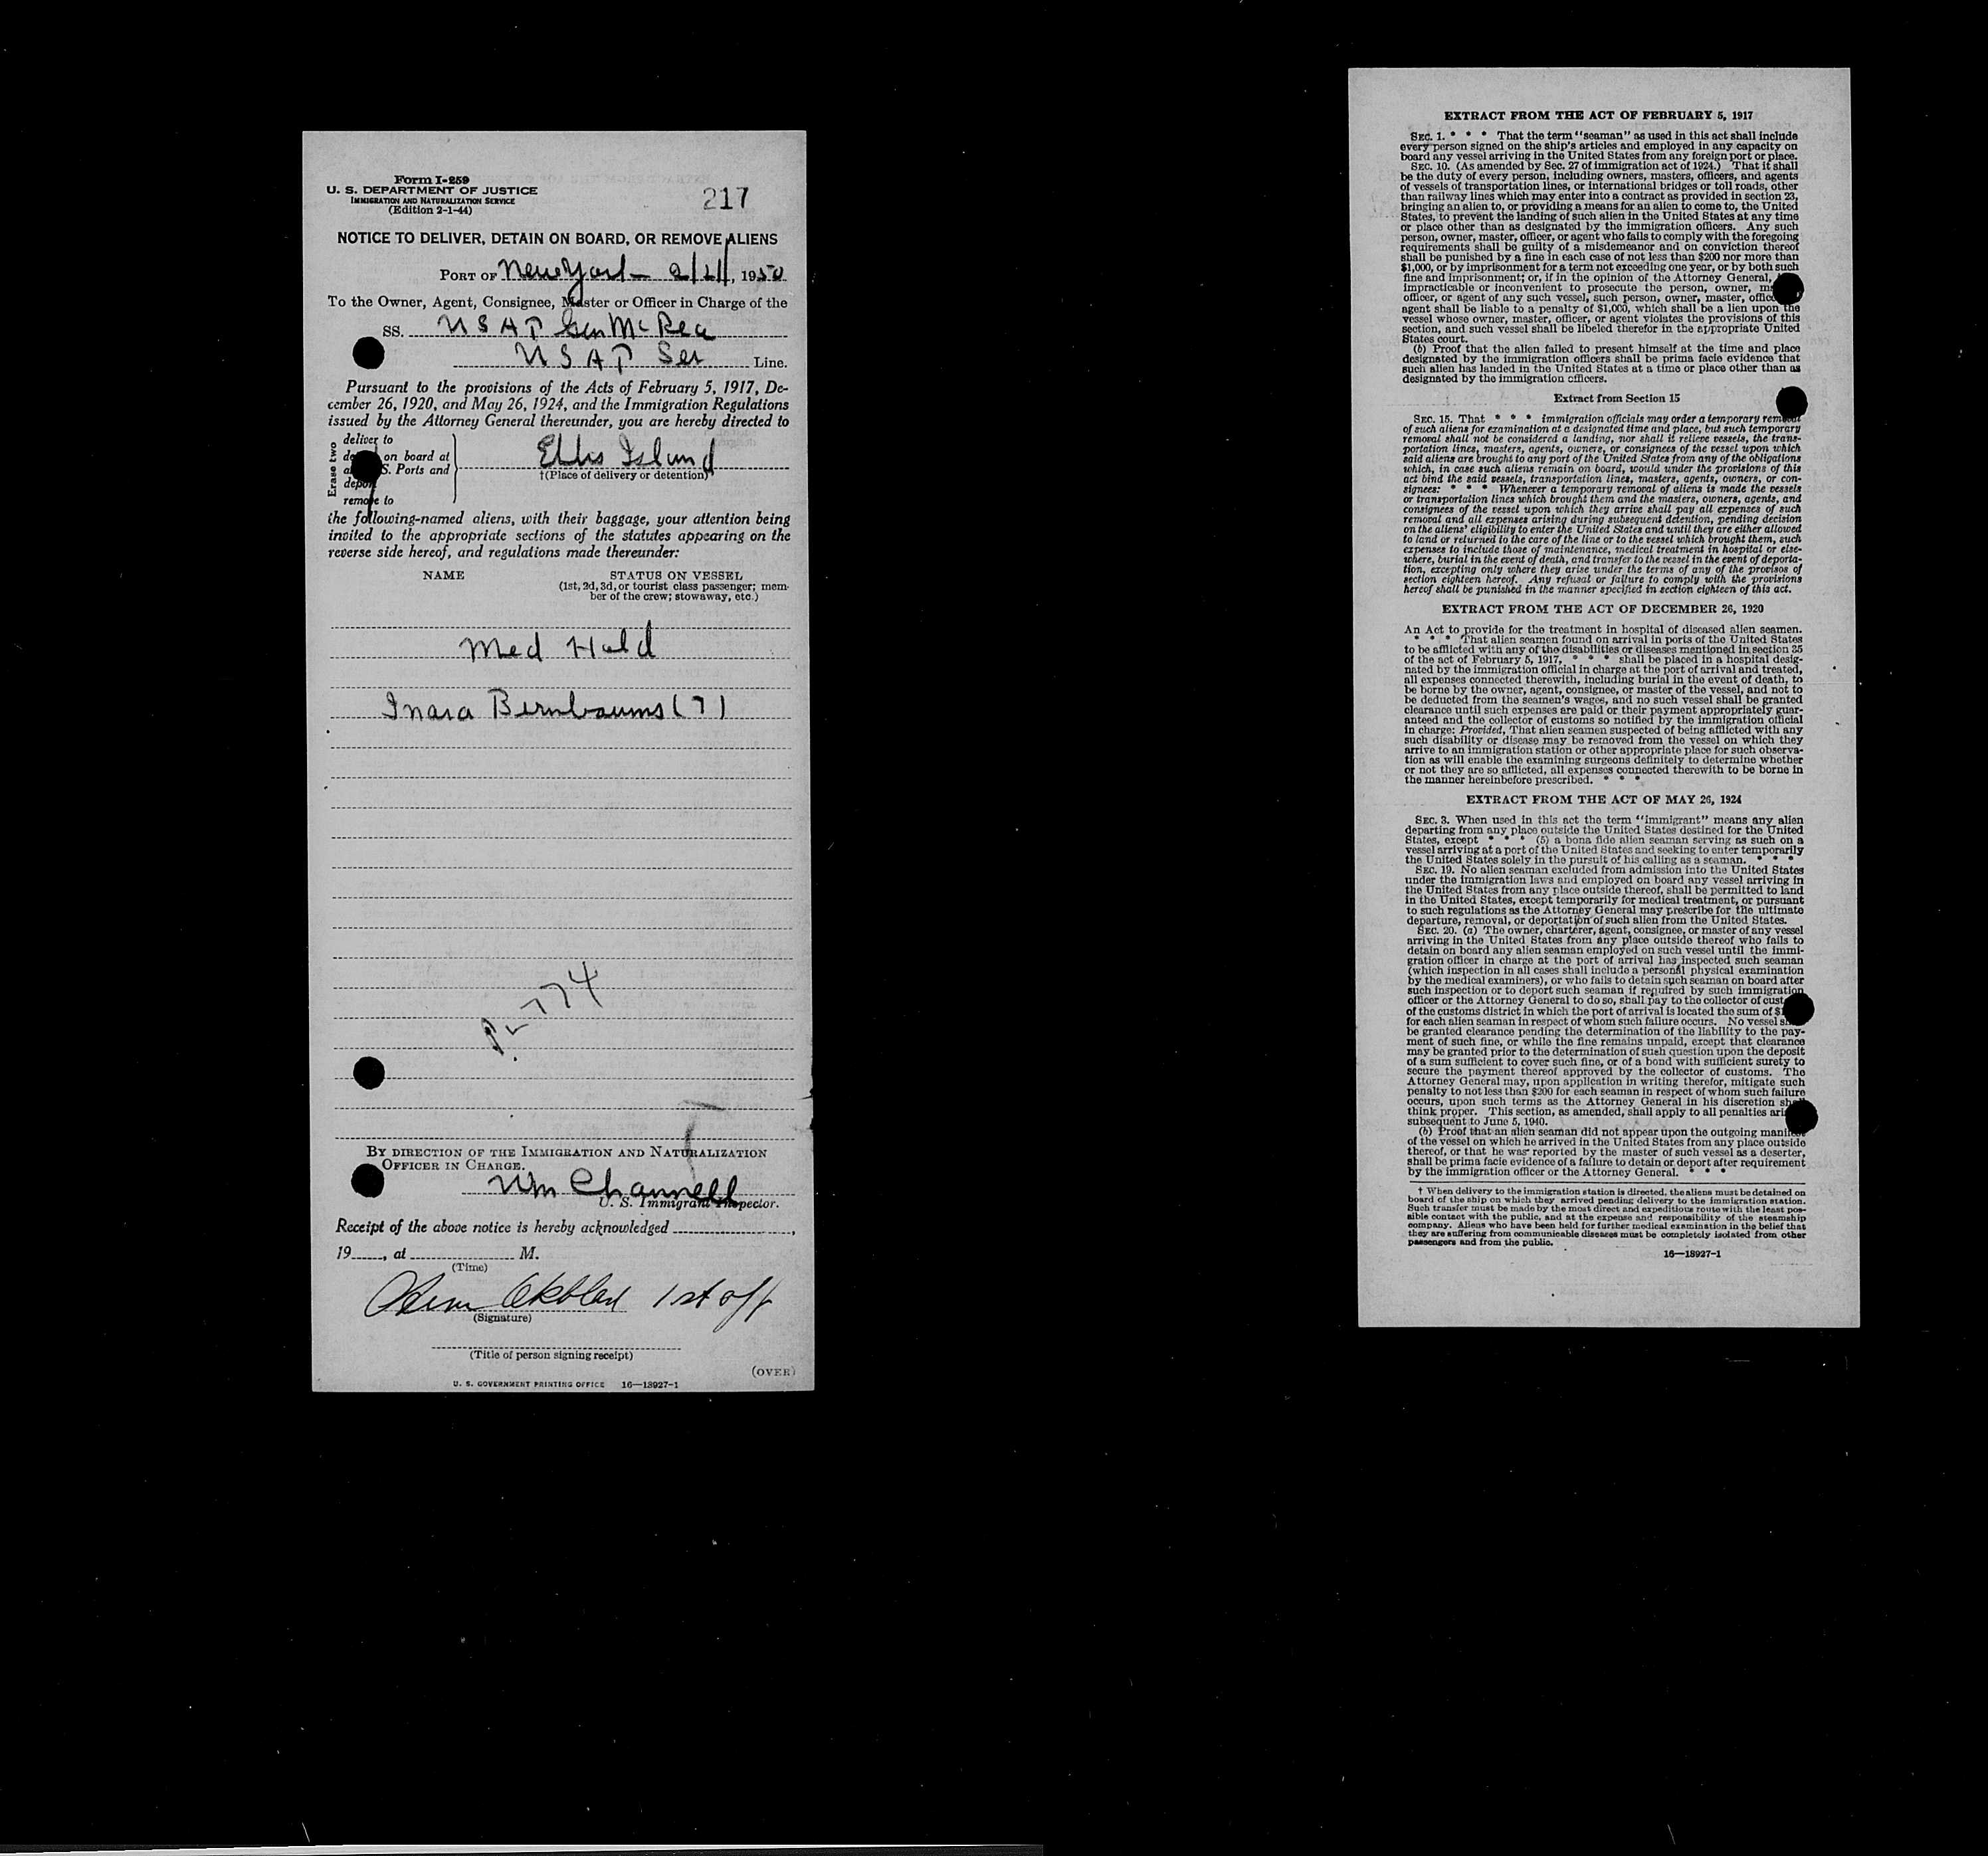 Form I-259
U. S. DEPARTMENT OF JUSTICE
IMMIGRATION AND NATURALIZATION SERVICE
(Edition 2-1-44)
217
NOTICE TO DELIVER, DETAIN ON BOARD, OR REMOVE ALIENS
PORT OF New York - 2/21, 1950
To the Owner, Agent, Consignee, Master or Officer in Charge of the
SS. USAT Gen McRea
USAT Ser Line.
Pursuant to the provisions of the Acts of February 5, 1917, De-
cember 26, 1920, and May 26, 1924, and the Immigration Regulations
issued by the Attorney General thereunder, you are hereby directed to
Erase two
deliver to
on board at
S. Ports and
remove to
Ellis Island
†(Place of delivery or detention)
the following-named aliens, with their baggage, your attention being
invited to the appropriate sections of the statutes appearing on the
reverse side hereof, and regulations made thereunder:
NAME STATUS ON VESSEL
(1st, 2d, 3d, or tourist class passenger; mem-
ber of the crew; stowaway, etc.)
Med Hold
Inara Bernbaums (7)
774
BY DIRECTION OF THE IMMIGRATION AND NATURALIZATION
OFFICER IN CHARGE.
Wm Channell
U. S. Immigrant Inspector.
Receipt of the above notice is hereby acknowledged ,
19 , at M.
(Time)
1st off
(Signature)
(Title of person signing receipt)
(OVER)
U. S. GOVERNMENT PRINTING OFFICE 16—18927-1
EXTRACT FROM THE ACT OF FEBRUARY 5, 1917
SEC. 1. * * * That the term "seaman" as used in this act shall include
every person signed on the ship's articles and employed in any capacity on
board any vessel arriving in the United States from any foreign port or place.
SEC. 10. (As amended by Sec. 27 of immigration act of 1924.) That it shall
be the duty of every person, including owners, masters, officers, and agents
of vessels of transportation lines, or international bridges or toll roads, other
than railway lines which may enter into a contract as provided in section 23,
bringing an alien to, or providing a means for an alien to come to, the United
States, to prevent the landing of such alien in the United States at any time
or place other than as designated by the immigration officers. Any such
person, owner, master, officer, or agent who fails to comply with the foregoing
requirements shall be guilty of a misdemeanor and on conviction thereof
shall be punished by a fine in each case of not less than $200 nor more than
$1,000, or by imprisonment for a term not exceeding one year, or by both such
fine and imprisonment; or, if in the opinion of the Attorney General,
impracticable or inconvenient to prosecute the person, owner,
officer, or agent of any such vessel, such person, owner, master, officer, or
agent shall be liable to a penalty of $1,000, which shall be a lien upon the
vessel whose owner, master, officer, or agent violates the provisions of this
section, and such vessel shall be libeled therefor in the appropriate United
States court.
(b) Proof that the alien failed to present himself at the time and place
designated by the immigration officers shall be prima facie evidence that
such alien has landed in the United States at a time or place other than as
designated by the immigration officers.
Extract from Section 15
SEC. 15. That * * * immigration officials may order a temporary removal
of such aliens for examination at a designated time and place, but such temporary
removal shall not be considered a landing, nor shall it relieve vessels, the trans-
portation lines, masters, agents, owners, or consignees of the vessel upon which
said aliens are brought to any port of the United States from any of the obligations
which, in case such aliens remain on board, would under the provisions of this
act bind the said vessels, transportation lines, masters, agents, owners, or con-
signees: * * * Whenever a temporary removal of aliens is made the vessels
or transportation lines which brought them and the masters, owners, agents, and
consignees of the vessel upon which they arrive shall pay all expenses of such
removal and all expenses arising during subsequent detention, pending decision
on the aliens' eligibility to enter the United States and until they are either allowed
to land or returned to the care of the line or to the vessel which brought them, such
expenses to include those of maintenance, medical treatment in hospital or else-
where, burial in the event of death, and transfer to the vessel in the event of deporta-
tion, excepting only where they arise under the terms of any of the provisos of
section eighteen hereof. Any refusal or failure to comply with the provisions
hereof shall be punished in the manner specified in section eighteen of this act.
EXTRACT FROM THE ACT OF DECEMBER 26, 1920
An Act to provide for the treatment in hospital of diseased alien seamen.
* * * That alien seamen found on arrival in ports of the United States
to be afflicted with any of the disabilities or diseases mentioned in section 35
of the act of February 5, 1917, * * * shall be placed in a hospital desig-
nated by the immigration official in charge at the port of arrival and treated,
all expenses connected therewith, including burial in the event of death, to
be borne by the owner, agent, consignee, or master of the vessel, and not to
be deducted from the seamen's wages, and no such vessel shall be granted
clearance until such expenses are paid or their payment appropriately guar-
anteed and the collector of customs so notified by the immigration official
in charge: Provided, That alien seamen suspected of being afflicted with any
such disability or disease may be removed from the vessel on which they
arrive to an immigration station or other appropriate place for such observa-
tion as will enable the examining surgeons definitely to determine whether
or not they are so afflicted, all expenses connected therewith to be borne in
the manner hereinbefore prescribed. * * *
EXTRACT FROM THE ACT OF MAY 26, 1924
SEC. 3. When used in this act the term "immigrant" means any alien
departing from any place outside the United States destined for the United
States, except * * * (5) a bona fide alien seaman serving as such on a
vessel arriving at a port of the United States and seeking to enter temporarily
the United States solely in the pursuit of his calling as a seaman. * * *
SEC. 19. No alien seaman excluded from admission into the United States
under the immigration laws and employed on board any vessel arriving in
the United States from any place outside thereof, shall be permitted to land
in the United States, except temporarily for medical treatment, or pursuant
to such regulations as the Attorney General may prescribe for the ultimate
departure, removal, or deportation of such alien from the United States.
SEC. 20. (a) The owner, charterer, agent, consignee, or master of any vessel
arriving in the United States from any place outside thereof who fails to
detain on board any alien seaman employed on such vessel until the immi-
gration officer in charge at the port of arrival has inspected such seaman
(which inspection in all cases shall include a personal physical examination
by the medical examiners), or who fails to detain such seaman on board after
such inspection or to deport such seaman if required by such immigration
officer or the Attorney General to do so, shall pay to the collector of customs
of the customs district in which the port of arrival is located the sum of
for each alien seaman in respect of whom such failure occurs. No vessel shall
be granted clearance pending the determination of the liability to the pay-
ment of such fine, or while the fine remains unpaid, except that clearance
may be granted prior to the determination of such question upon the deposit
of a sum sufficient to cover such fine, or of a bond with sufficient surety to
secure the payment thereof approved by the collector of customs. The
Attorney General may, upon application in writing therefor, mitigate such
penalty to not less than $200 for each seaman in respect of whom such failure
occurs, upon such terms as the Attorney General in his discretion shall
think proper. This section, as amended, shall apply to all penalties arising
subsequent to June 5, 1940.
(b) Proof that an alien seaman did not appear upon the outgoing manifest
of the vessel on which he arrived in the United States from any place outside
thereof, or that he was reported by the master of such vessel as a deserter,
shall be prima facie evidence of a failure to detain or deport after requirement
by the immigration officer or the Attorney General. * * *
† When delivery to the immigration station is directed, the aliens must be detained on
board of the ship on which they arrived pending delivery to the immigration station.
Such transfer must be made by the most direct and expeditious route with the least pos-
sible contact with the public, and at the expense and responsibility of the steamship
company. Aliens who have been held for further medical examination in the belief that
they are suffering from communicable diseases must be completely isolated from other
passengers and from the public.
16—18927-1